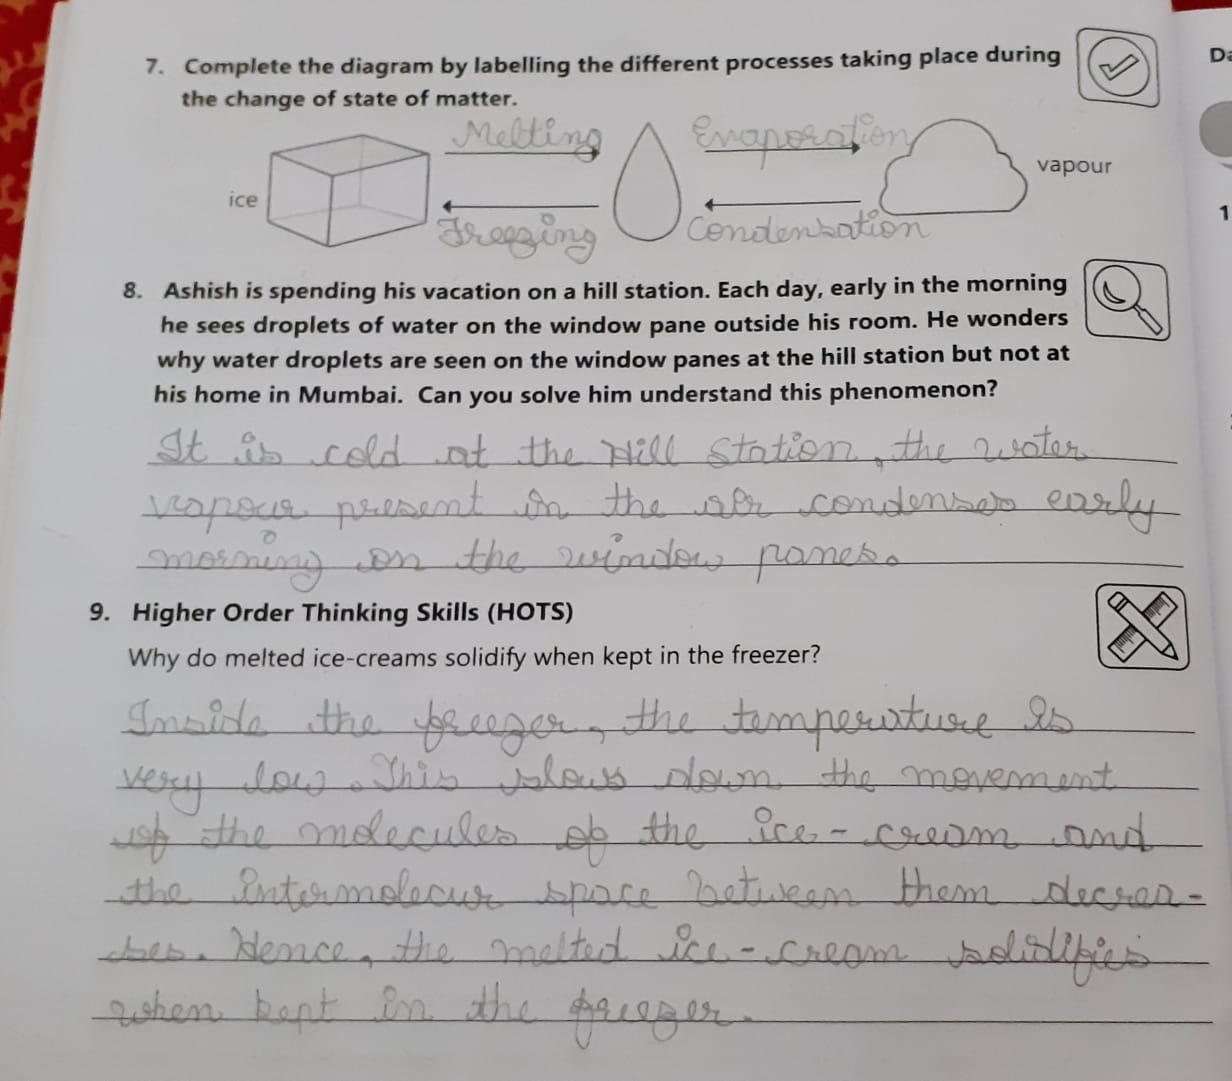 7. Complete the diagram by labelling the different processes taking place during
the change of state of matter.
Melting Evaporation
ice vapour
Freezing Condensation
8. Ashish is spending his vacation on a hill station. Each day, early in the morning
he sees droplets of water on the window pane outside his room. He wonders
why water droplets are seen on the window panes at the hill station but not at
his home in Mumbai. Can you solve him understand this phenomenon?
It is cold at the Hill Station, the water
vapour present in the air condenses early
morning on the window panes.
9. Higher Order Thinking Skills (HOTS)
Why do melted ice-creams solidify when kept in the freezer?
Inside the freezer, the temperature is
very low. This slows down the movement
of the molecules of the ice-cream and
the intermolecur space between them decrea-
ses. Hence, the melted ice-cream solidifies
when kept in the freezer.
Da
1